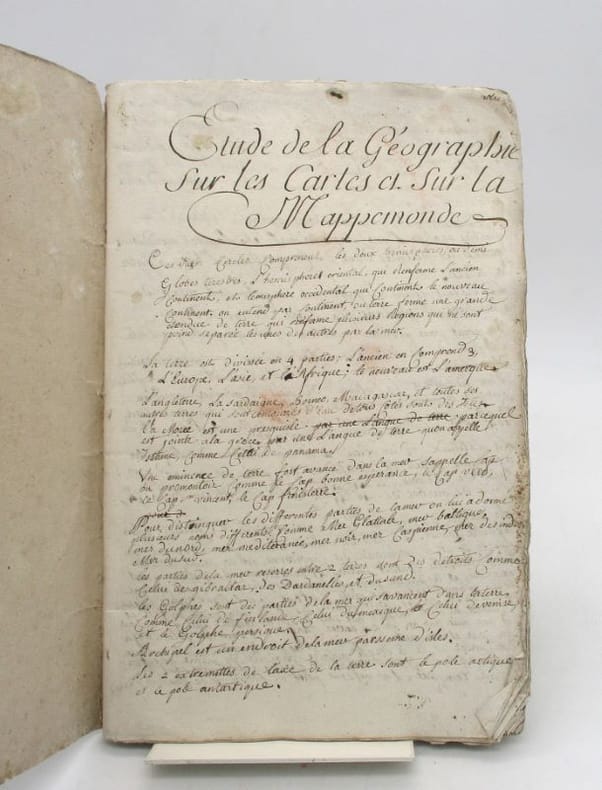 Etude de la Géographie
sur les Cartes et sur la
Mappemonde
Ces deux Cercles Comprennent les deux hemispheres, ou demi
Globes terestres, L'hemisphere oriental, qui renferme L'ancien
Continent, et L'emisphere occidental qui Contient le nouveau
Continent, on entend par Continent, ou terre ferme une grande
étendue de terre qui plusieurs Regions qui ne sont
point separée les unes des autres par la mer.
La terre est divisée en 4 parties; L'ancien en Comprend 3,
L'Europe, L'asie, et L'Afrique; le nouveau est L'amerique
L'angletere, La Sardaigne, Borneo, Madagascar, et toutes les
autres terres qui sont d'Eau de tous Cotés sont des Iles
La Morée est une presquisle par une Langue de terre parcequel
est jointe a la grece par une Langue de terre quon apelle
Istume, Comme Celle de panama,
Une eminence de terre fort avancé dans la mer s'appelle Cap
ou promontoir Comme le Cap bonne esperance, le Cap verd,
Le Cap st vincent, le Cap finisterre.
Pour distinguer les differentes parties de la mer on lui a donné
plusieurs noms differents Comme Mer Glatiale, mer baltique,
mer du nord, mer mediteranée, mer noir, mer Caspienne, mer des indes
Mer du sud.
Les parties de la mer reserrés entre 2 teres sont des detroits Comme
Celui de gibraltar, des Dardanelles, et du sund.
les Golphes sont des parties de la mer qui s'avancent dans la terre
Comme Celui de finlande, Celui du mexique, et Celui de venise,
et le Golphe persique,
Archipel est un endroit de la mer parsemé d'iles.
Les 2 extremittes de l'axe de la terre sont le pole artique
et le pole antartique.